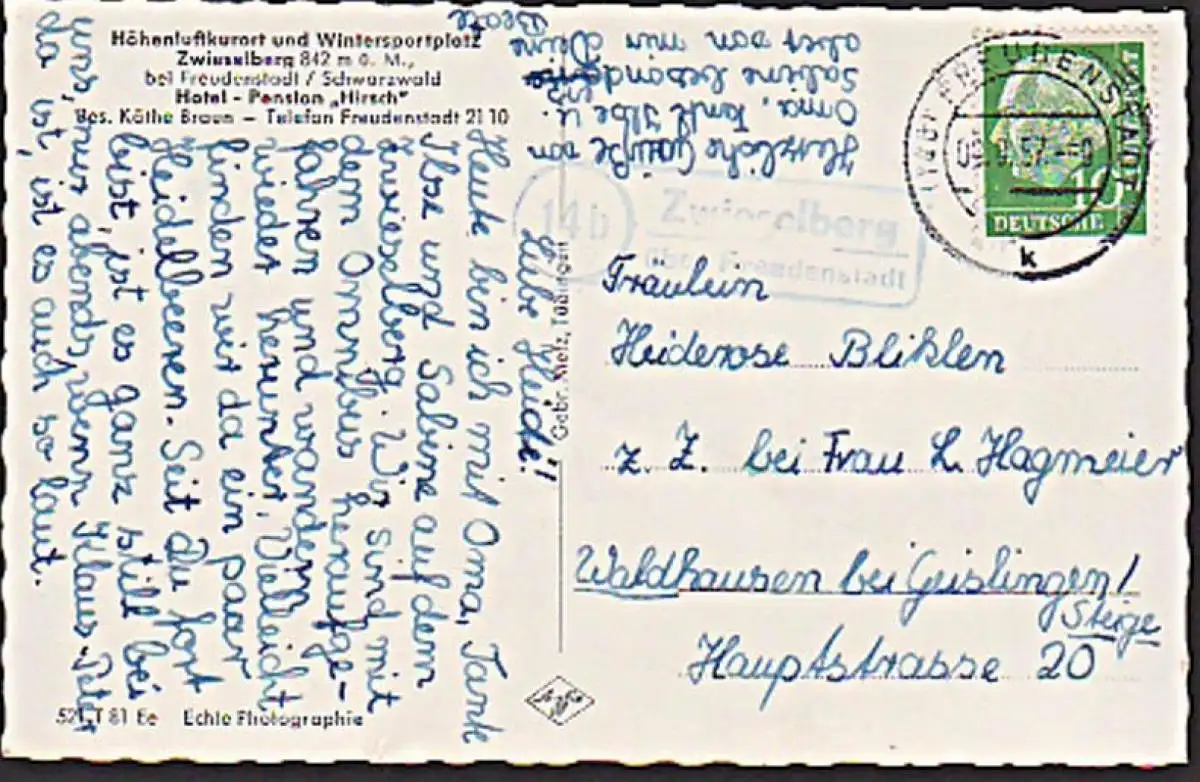 Höhenluftkurort und Wintersportplatz
Zwieselberg 842 m ü. M.,
bei Freudenstadt / Schwarzwald
Hotel - Pension „Hirsch"
Bes. Käthe Braun – Telefon Freudenstadt 21 10
Liebe Heide!
Heute bin ich mit Oma, Tante
Ilse und Sabine auf dem
Zwieselberg. Wir sind mit
dem Omnibus heraufge-
fahren und wandern
wieder herunter. Vielleicht
finden wir da ein paar
Heidelbeeren. Seit Du fort
bist, ist es ganz still bei
uns, nur abends, wenn Klaus-Peter
da ist, ist es auch so laut.
Herzliche Grüße von
Oma, Tante Ilse u.
Sabine besonders
aber von mir Deine
Beate
521 T 81 Ee Echte Photographie
Gebr. Metz, Tübingen
FREUDENSTADT
k
10
DEUTSCHE
14b
Zwieselberg
über Freudenstadt
Fräulein
Heiderose Bliklen
z. Z. bei Frau L. Hagmeier
Waldhausen bei Geislingen/
Steige
Hauptstrasse 20